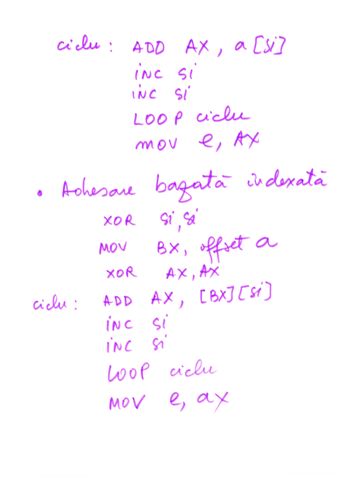 ciclu: ADD AX, a[si]
inc si
inc si
LOOP ciclu
mov e, AX
• Adresare bazată indexată
XOR si,si
MOV BX, offset a
XOR AX,AX
ciclu: ADD AX, [BX][si]
inc si
inc si
LOOP ciclu
MOV e, ax